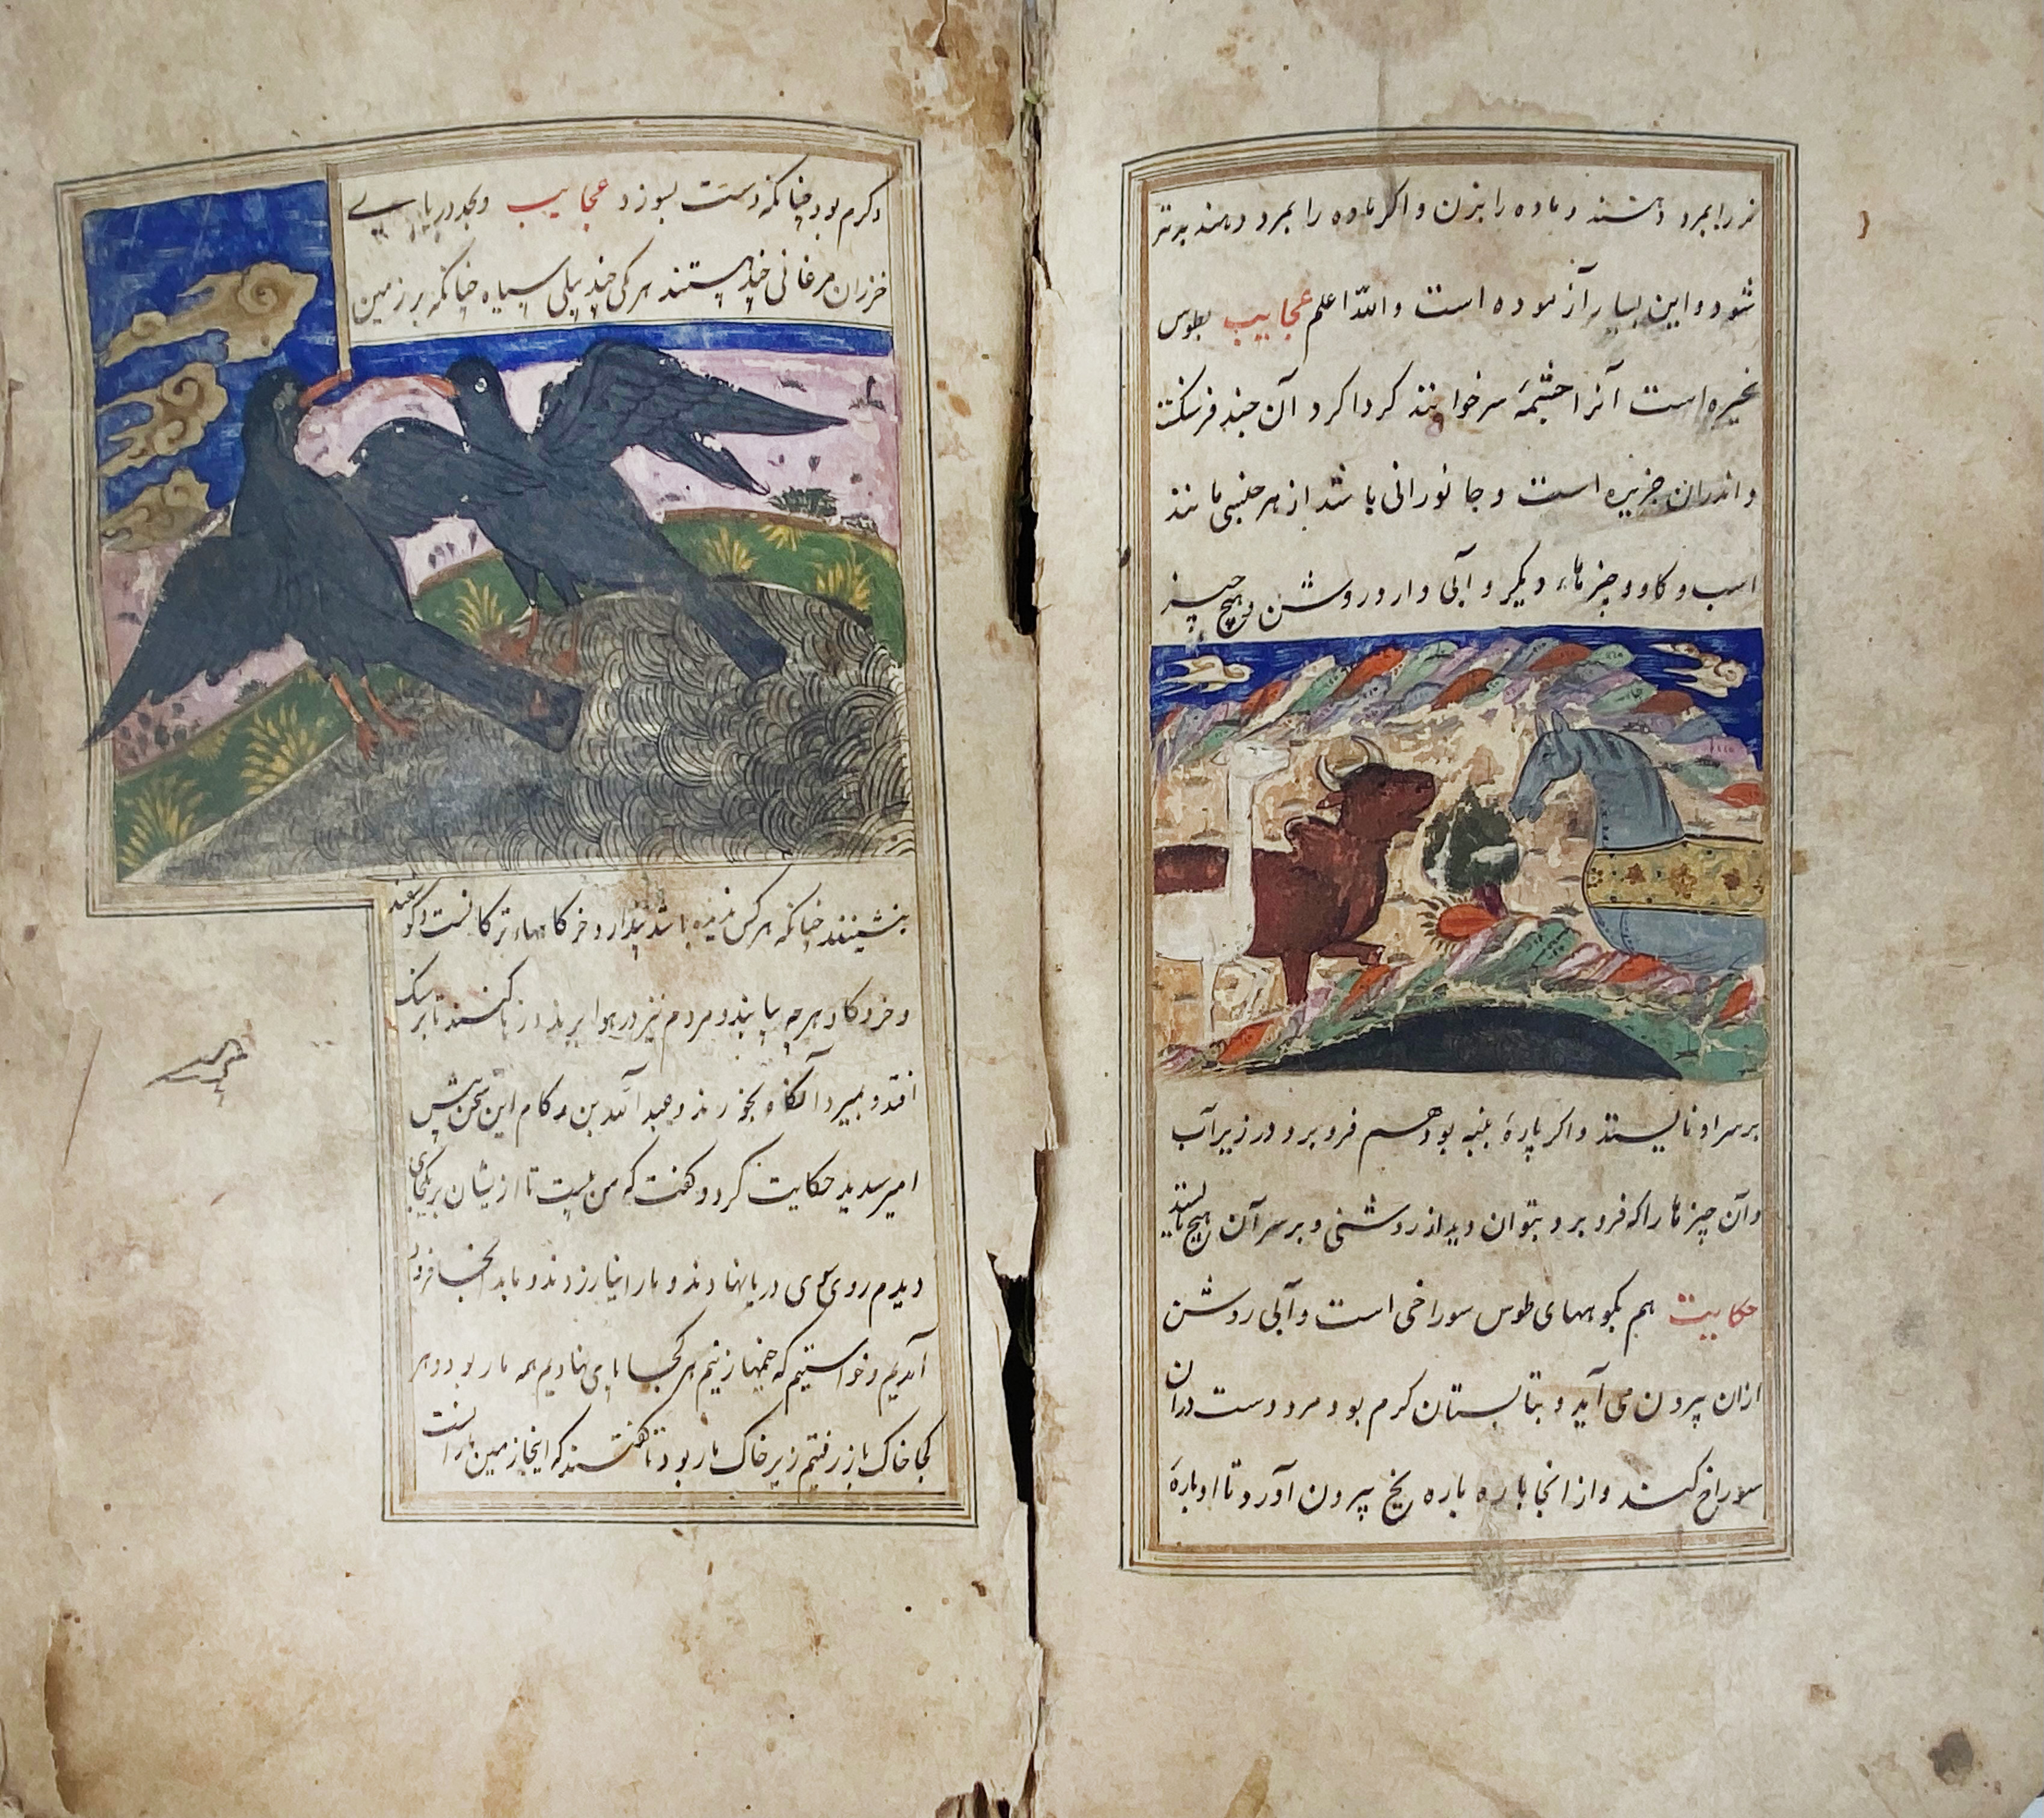 نر را بمرد دهند و ماده را بزن و اکر ماده را بمرد دهند بدتر
شود و این بسیار آزموده است والله اعلم عجایب بطوس
بحیره است آنرا چشمه سر خوانند کرداکرد آن چند فرسنکت
و اندران جزیره است و جانورانی باشد از هر جنسی مانند
اسب و کاو و چیزهاء دیکر و آبی دارد روشن و هیچ چیز
بر سر او نایستد و اکر پارهٔ پنبه بود هم فرو برد در زیر آب
و آن چیزها را که فرو برد بتوان دید از روشنی و بر سر آن هیچ نایستد
حکایت هم بکوههای طوس سوراخی است و آبی روشن
ازان بیرون می آید و بتابستان کرم بود مرد دست دران
سوراخ کند و از انجا باره باره یخ بیرون آورد تا او بارهٔ
دکرم بود چنانکه دست بسوزد عجایب وبحد دریای
خزران مرغانی هستند هر یکی چند پیلی سیاه چنانکه بر زمین
بنشینند چنانکه هر کس باشد پندارد خرکاههاء ترکانست و کوسفند
و خر و کاو هرچه یابند و مردم نیز در هوا برند و باز کنند تا بر سنک
افتد و بمیرد آنکاه بخورند و عبد الله بن این سخن پیش
امیر سدید حکایت کرد و کفت که من تا ازیشان بر یکجای
دیدم روی سوی دریا نهادند و ما را زدند و ما بدانجا فرود
آمدیم و خواستیم که خیمها زنیم هر کجا پای نهادیم همه مار بود و هر
کجا خاک باز رفتیم زیر خاک مار بود تا کفتند که اینجا زمین مارانست